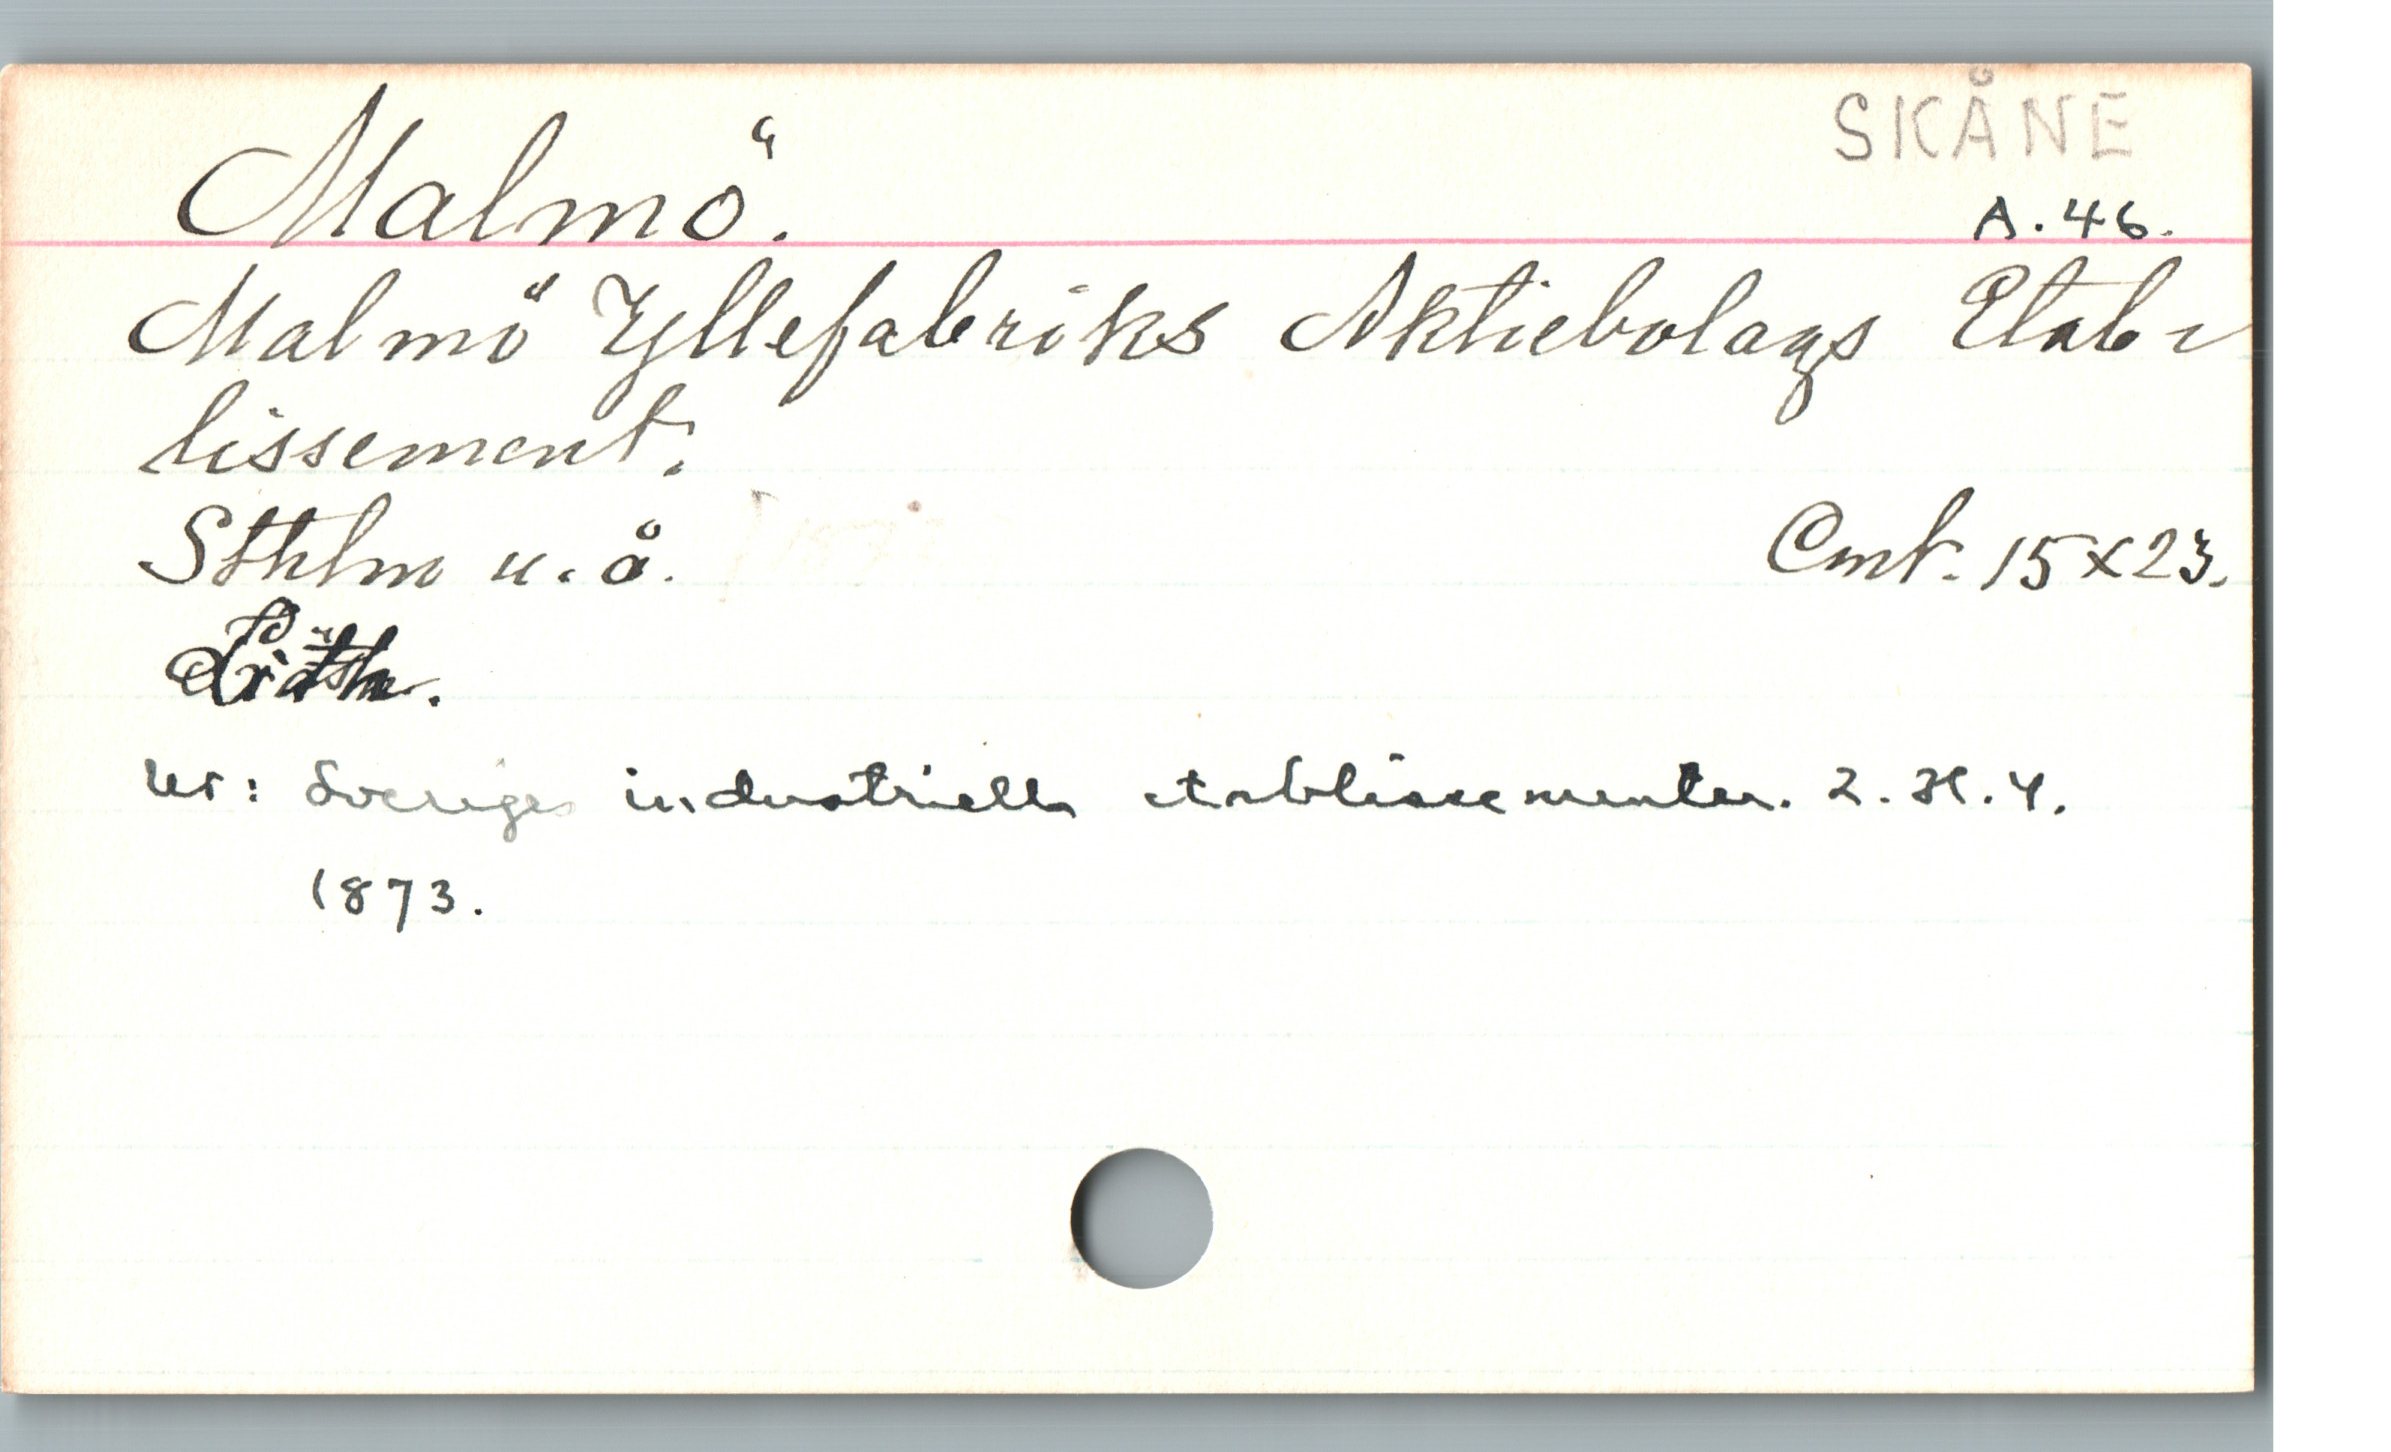 SKÅNE
Malmö.
A. 46.
Malmö Yllefabriks Aktiebolags Etab-
lissement.
Sthlm u. å.
Cmt. 15x23.
Ur: Sveriges industriella etablissementer. 2. H. 4.
1873.